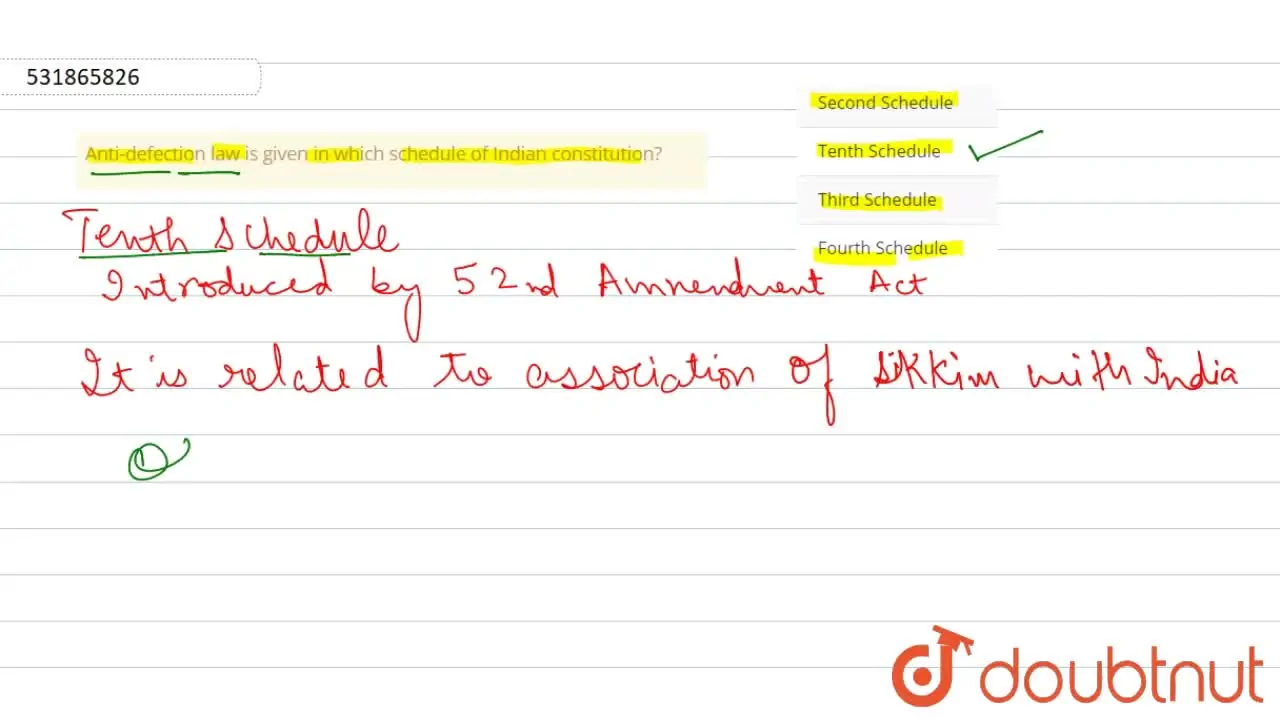 531865826
Anti-defection law is given in which schedule of Indian constitution?
Second Schedule
Tenth Schedule
Third Schedule
Fourth Schedule
Tenth Schedule
Introduced by 52nd Amnendment Act
It is related to association of Sikkim with India
doubtnut